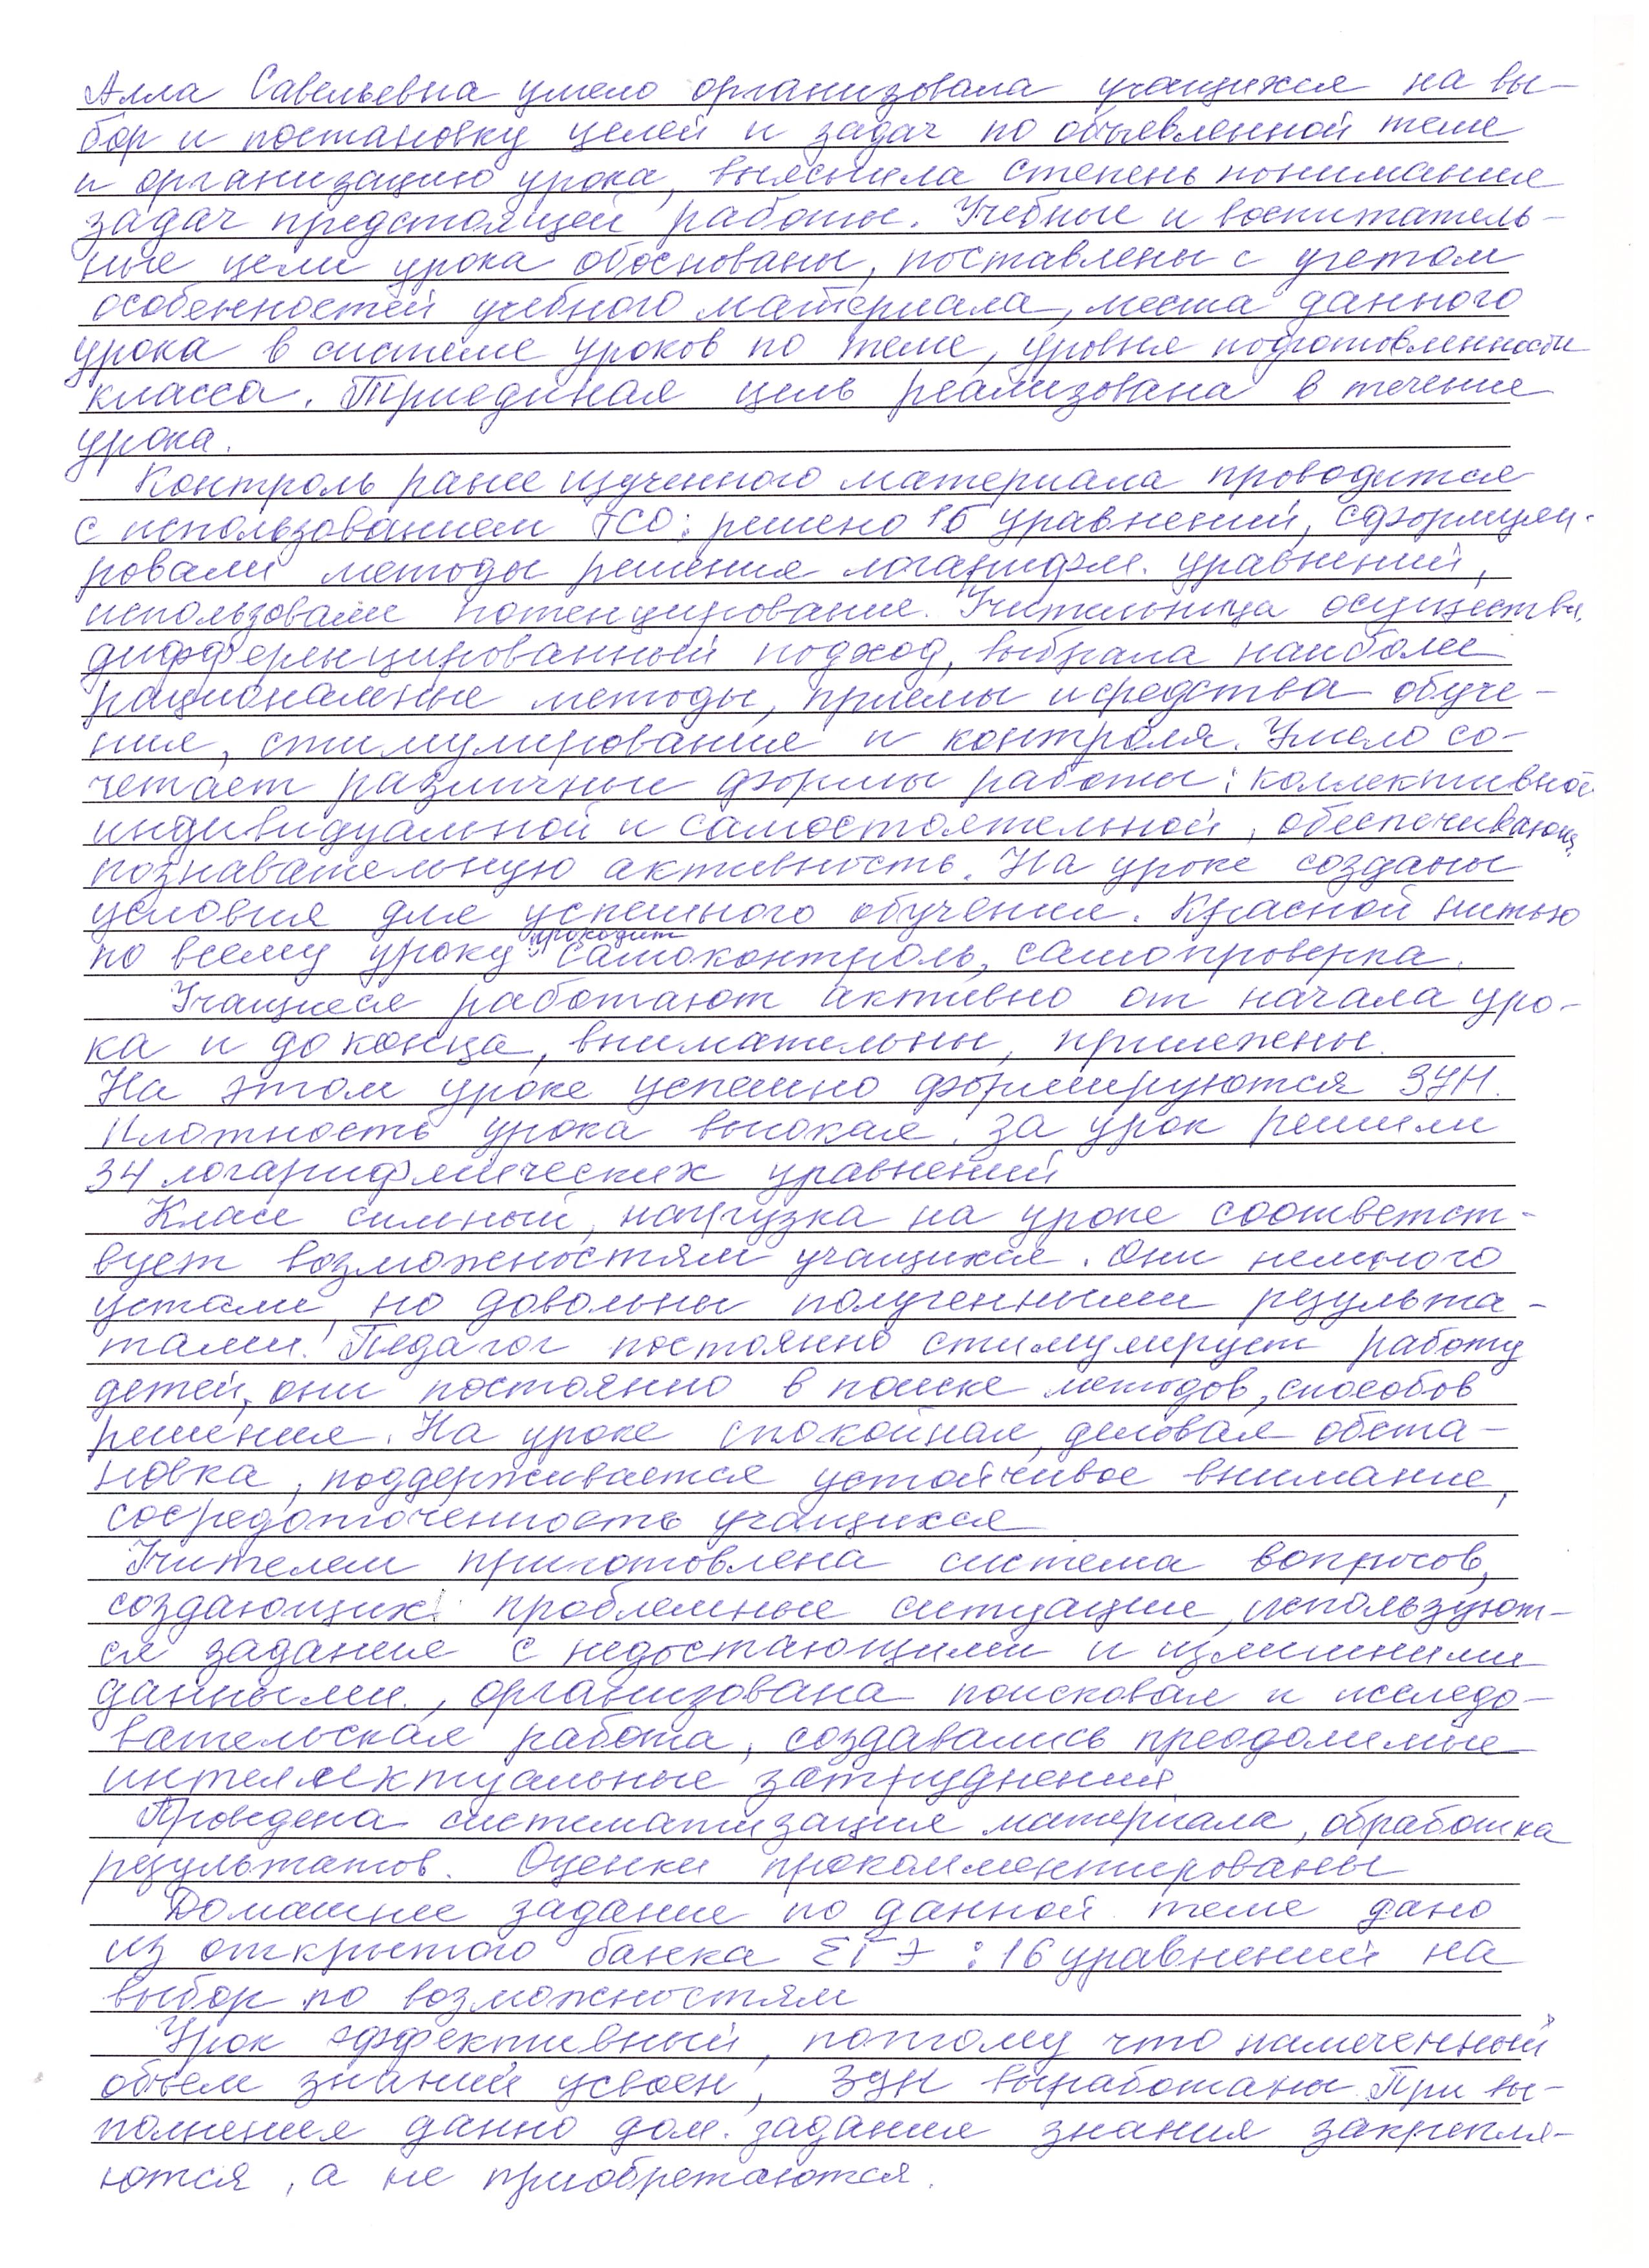 Алла Савельевна умело организовала учащихся на вы-
бор и постановку целей и задач по объявленной теме
и организацию урока, выяснила степень понимания
задач предстоящей работы. Учебные и воспитатель-
ные цели урока обоснованы, поставлены с учетом
особенностей учебного материала, места данного
урока в системе уроков по теме, уровня подготовленности
класса. Триединая цель реализована в течение
урока.
Контроль ранее изученного материала проводится
с использованием ТСО: решено 16 уравнений, сформули-
ровали методы решения логарифм. уравнений,
использовали потенцирование. Учительница осуществл.
дифференцированный подход, выбрала наиболее
рациональные методы, приемы и средства обуче-
ния, стимулирования и контроля. Умело со-
четает различные формы работы: коллективной
индивидуальной и самостоятельной, обеспечивающ.
познавательную активность. На уроке созданы
условия для успешного обучения. Красной нитью
по всему уроку проходит самоконтроль, самопроверка.
Учащиеся работают активно от начала уро-
ка и до конца, внимательны, прилежны.
На этом уроке успешно формируются ЗУН.
Плотность урока высокая. За урок решили
34 логарифмических уравнений
Класс сильный, нагрузка на уроке соответст-
вует возможностям учащихся. Они немного
устали, но довольны полученными результа-
тами! Педагог постоянно стимулирует работу
детей, они постоянно в поиске методов, способов
решения. На уроке спокойная, деловая обста-
новка, поддерживается устойчивое внимание,
сосредоточенность учащихся
Учителем приготовлена система вопросов,
создающих проблемные ситуации, используют-
ся задания с недостающими и излишними
данными, организована поисковая и исследо-
вательская работа, создавались преодолимые
интеллектуальные затруднения
Проведена систематизация материала, обработка
результатов. Оценки прокомментированы
Домашнее задание по данной теме дано
из открытого банка ЕГЭ: 16 уравнений на
выбор по возможностям
Урок эффективный, потому что намеченный
объем знаний усвоен, ЗУН выработаны. При вы-
полнения данно дом. задания знания закрепля-
ются, а не приобретаются.